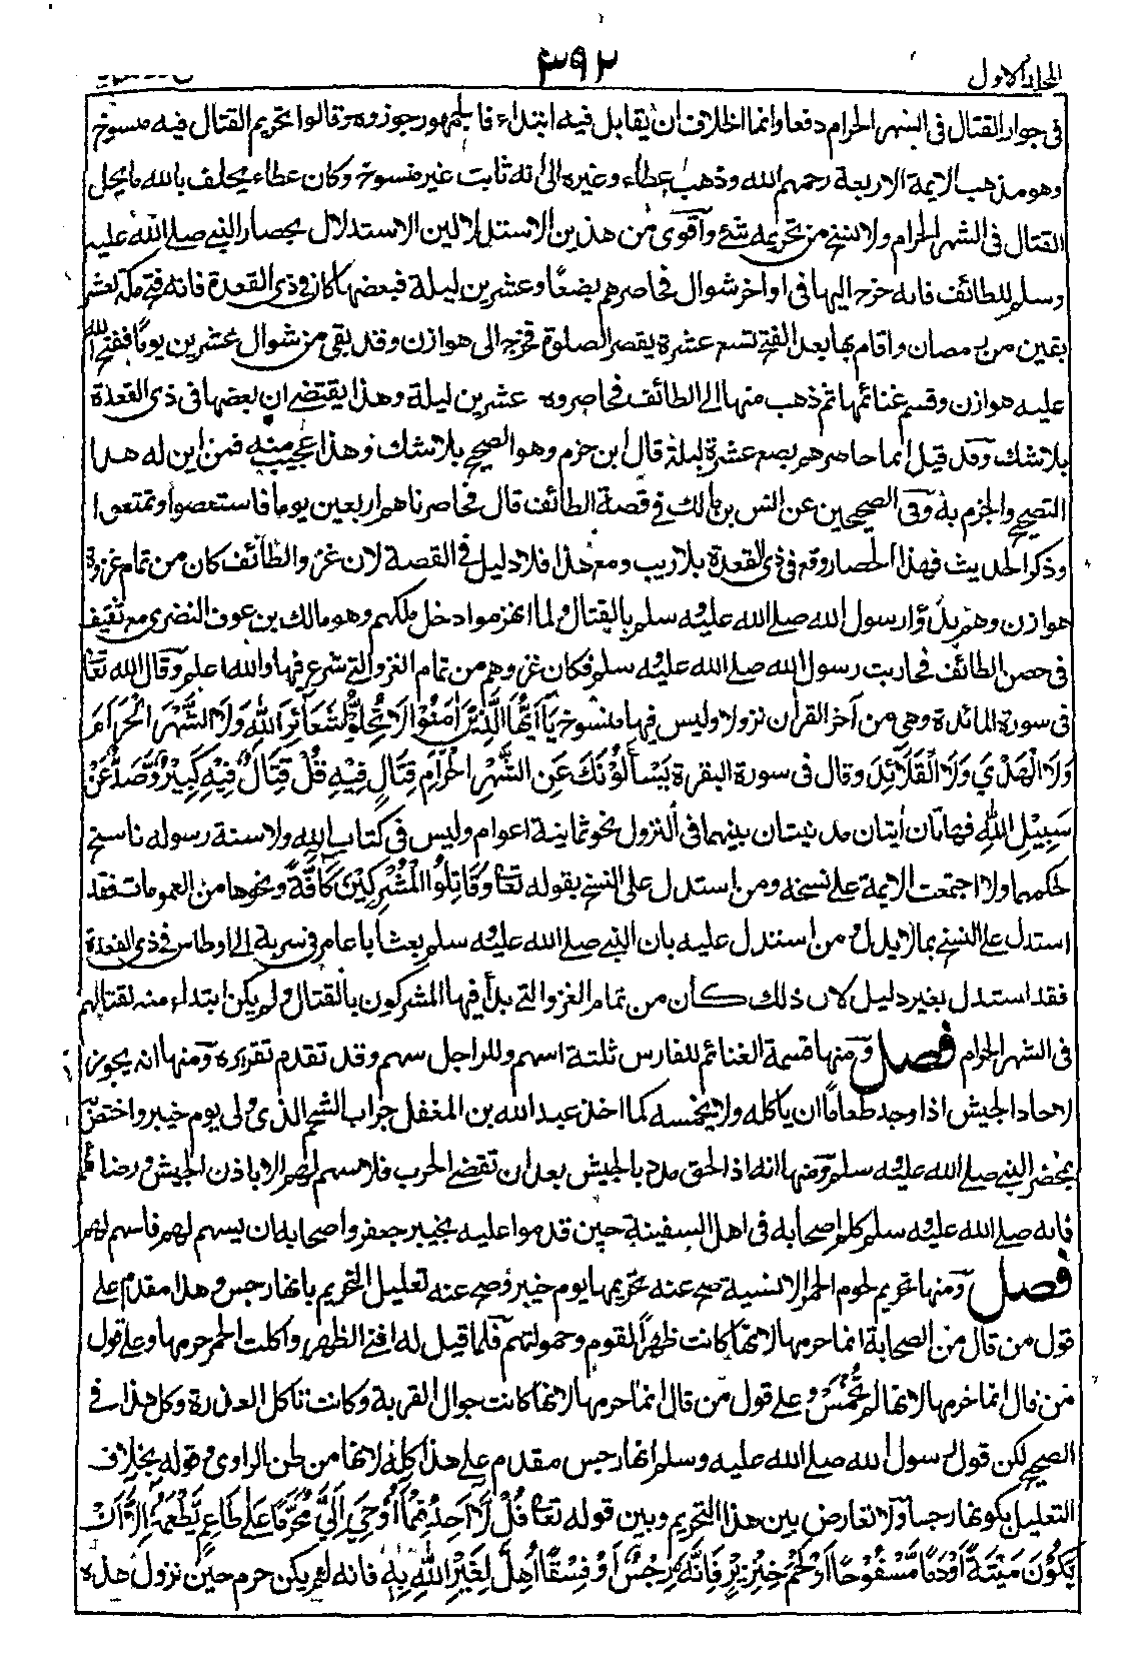 المجلد الاول
٣٩٢
فى جواز القتال فى الشهر الحرام دفعا وانما الخلاف ان يقابل فيه ابتداء فالجمهور جوزوه وقالوا تحريم القتال فيه منسوخ
وهو مذهب الايمة الاربعة رحمهم الله وذهب عطاء وغيره الى انه ثابت غير منسوخ وكان عطاء يحلف بالله ما يحل
القتال فى الشهر الحرام ولا نسخ من تحريمه شئ وآقوى من هذين الاستدلالين الاستدلال بحصار النبى صلى الله عليه
وسلم للطائف فانه خرج اليها فى اواخر شوال فحاصرهم بضعًا وعشرين ليلة فبعضها كان فى ذى القعدة فانه فتح مكة لعشر
بقين من رمضان واقام بها بعد الفتح تسع عشرة يقصر الصلوة فخرج الى هوازن وقد بقى من شوال عشرين يومًا ففتح الله
عليه هوازن وقسم غنائمها ثم ذهب منها الى الطائف فحاصروه عشرين ليلة وهذا يقتضى ان بعضها فى ذى القعدة
بلا شك وقد قيل انما حاصرهم بضع عشرة ليلة قال ابن حزم وهو الصحيح بلا شك وهذا عجيب منه فمن اين له هذا
التصحيح والجزم به وفى الصحيحين عن انس بن مالك فى قصة الطائف قال فحاصرناهم اربعين يوما فاستعصوا وتمتعوا
وذكر الحديث فهذا الحصار وقع فى ذى القعدة بلا ريب ومع هذا فلا دليل فى القصة لان غزو الطائف كان من تمام غزوة
هوازن وهم بدؤا رسول الله صلى الله عليه سلم بالقتال ولما انهزموا دخل ملكهم وهو مالك بن عوف النضرى مع ثقيف
فى حصن الطائف فحاربت رسول الله صلى الله عليه سلم فكان غزوهم من تمام الغزو التى شرع فيها والله اعلم وقال الله تعا
فى سورة المائدة وهى من آخر القرأن نزولا وليس فيها منسوخ يَآاَيُّهَا الَّذِيْنَ اٰمَنُوْا لَا تُحِلُّوْا شَعَآئِرَ اللهِ وَلَا الشَّهْرَ الْحَرَامَ
وَلَا الْهَدْيَ وَلَا الْقَلَآئِدَ وقال فى سورة البقرة يَسْأَلُوْنَكَ عَنِ الشَّهْرِ الْحَرَامِ قِتَالٍ فِيْهِ قُلْ قِتَالٌ فِيْهِ كَبِيْرٌ وَّصَدٌّ عَنْ
سَبِيْلِ اللهِ فهاتان أيتان مدنيتان بينهما فى النزول نحو ثمانية اعوام وليس فى كتاب الله ولا سنة رسوله ناسخ
لحكمهما ولا اجتمعت الايمة على نسخه ومن استدل على النسخ بقوله تعا وَقَاتِلُوا الْمُشْرِكِيْنَ كَآفَّةً ونحوها من العمومات فقد
استدل على النسخ بما لا يدل ومن استدل عليه بان النبى صلى الله عليه سلم بعث ابا عامر فى سرية الى اوطاس فى ذى القعدة
فقد استدل بغير دليل لان ذلك كان من تمام الغزو التى بدأ فيها المشركون بالقتال ولم يكن ابتداء منه لقتالهم
فى الشهر الحرام فصل ومنها قسمة الغنائم للفارس ثلثة اسهم وللراجل سهم وقد تقدم تقريره ومنها انه يجوز
لاحاد الجيش اذا وجد طعامًا ان ياكله ولا يخمسه كما اخذ عبد الله بن المغفل جراب الشحم الذى دلى يوم خيبر واختص
بمحضر النبى صلى الله عليه سلم ومنها انه اذا الحق مدد بالجيش بعد ان تقضى الحرب فلا سهم لهم الا باذن الجيش ورضائهم
فانه صلى الله عليه سلم كلم اصحابه فى اهل السفينة حين قدموا عليه بخيبر جعفر واصحابه ان يسهم لهم فاسهم لهم
فصل ومنها تحريم لحوم الحمر الانسية صح عنه تحريمها يوم خيبر وصح عنه تعليل التحريم بانها رجس وهذا مقدم على
قول من قال من الصحابة انما حرمها لانها كانت ظهر القوم وحمولتهم فلما قيل له افنى الظهر واكلت الحمر حرمها وعلى قول
من قال انما حرمها لانها لم تُخَمَّسْ وعلى قول من قال انما حرمها لانها كانت جوال القرية وكانت تاكل العذرة وكل هذا فى
الصحيح لكن قول رسول الله صلى الله عليه وسلم انها رجس مقدم على هذا كله لانها من ظن الراوى وقوله بخلاف
التعليل بكونها رجسا ولا تعارض بين هذا التحريم وبين قوله تعا قُلْ لَّا اَجِدُ فِيْمَآ اُوْحِيَ اِلَيَّ مُحَرَّمًا عَلٰى طَاعِمٍ يَّطْعَمُهٗ اِلَّآ اَنْ
يَّكُوْنَ مَيْتَةً اَوْ دَمًا مَّسْفُوْحًا اَوْ لَحْمَ خِنْزِيْرٍ فَاِنَّهٗ رِجْسٌ اَوْ فِسْقًا اُهِلَّ لِغَيْرِ اللهِ بِهٖ فانه لم يكن حرم حين نزول هذه